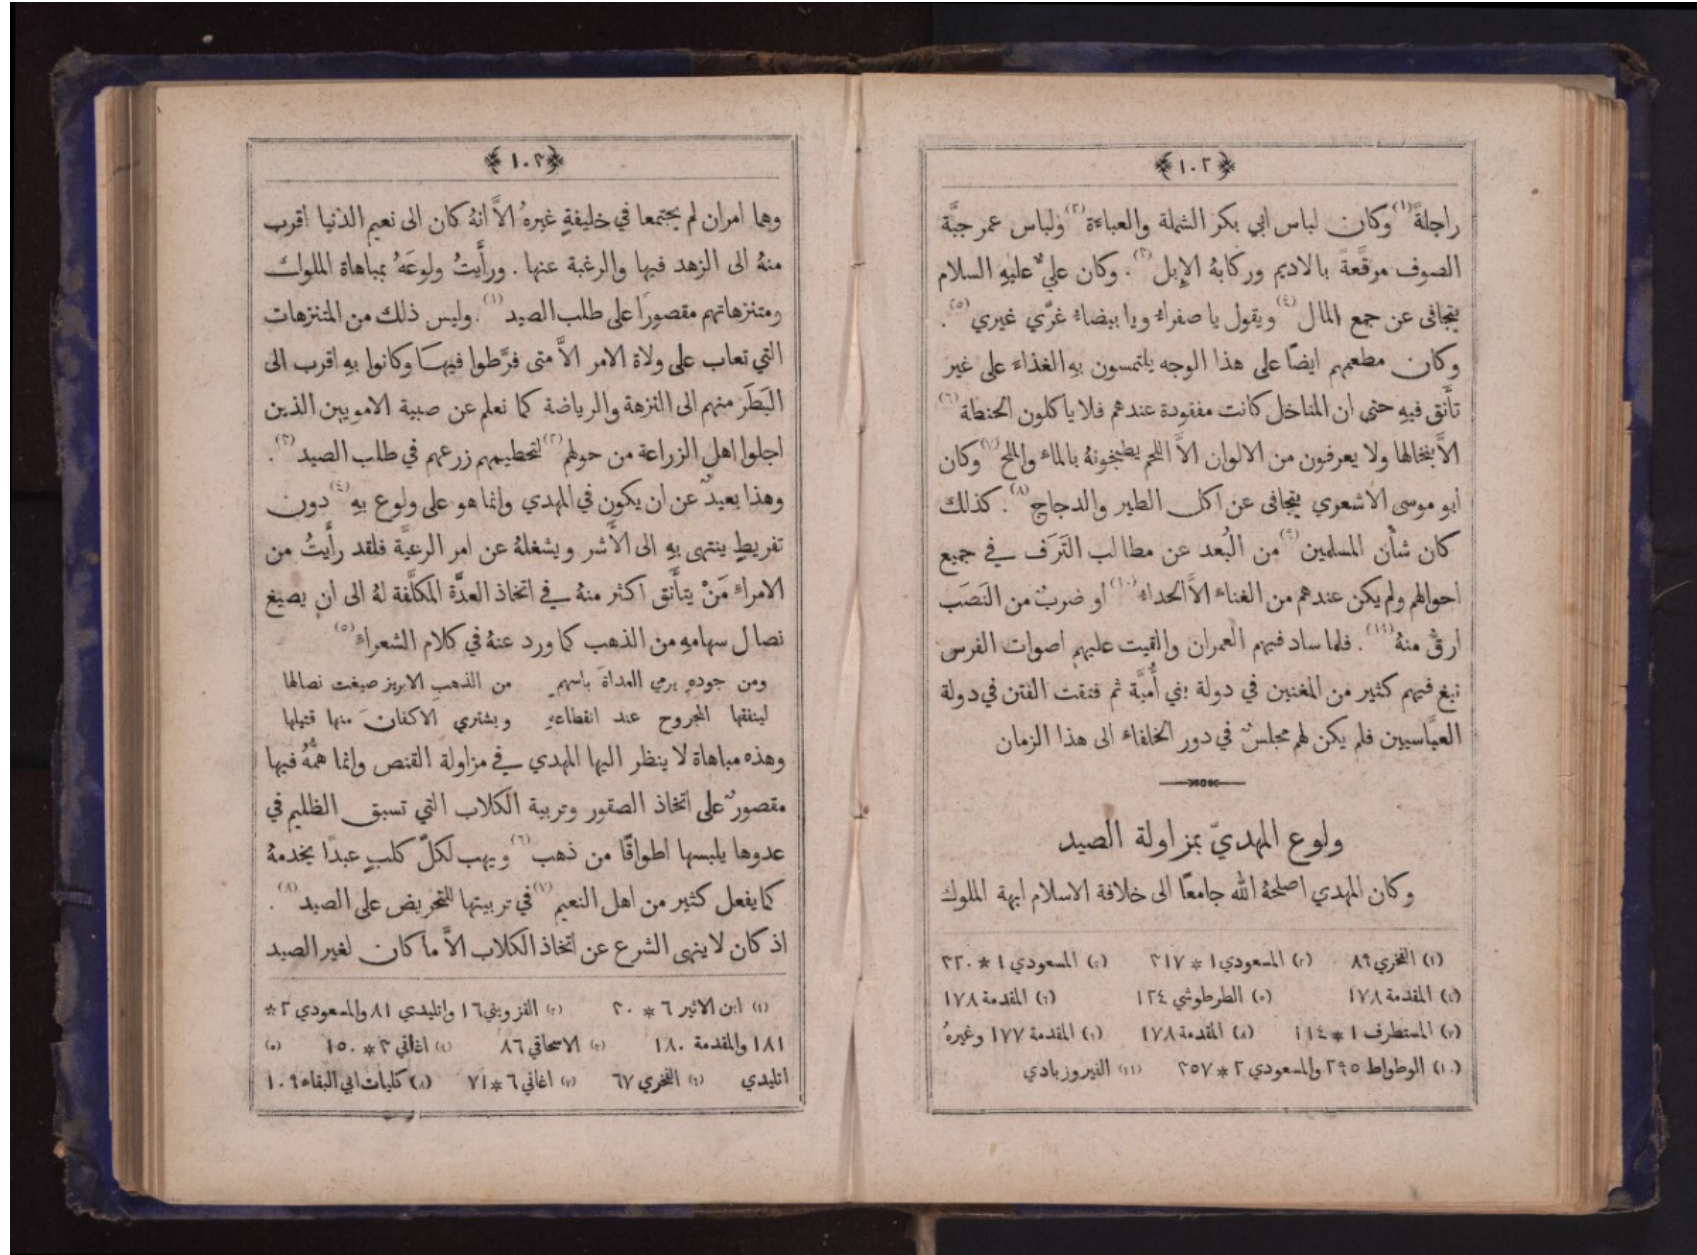 ﴿١٠٢﴾
راجلةً (١) وكان لباس ابي بكر الشملة والعباءة (٢) ولباس عمر جبَّة
الصوف مرقَّعةً بالاديم وركابهُ الإِبل (٣). وكان عليٌّ عليهِ السلام
يتجافى عن جمع المال (٤) ويقول يا صفراءُ ويا بيضاءُ غرّي غيري (٥).
وكان مطعمهم ايضًا على هذا الوجه يلتمسون بهِ الغذاءَ على غير
تأَنق فيهِ حتى ان المناخل كانت مفقودة عندهم فلا ياكلون الحنطة (٦)
الاَّ بنخالها ولا يعرفون من الالوان الاَّ اللحم يطبخونهُ بالماءِ والملح (٧) وكان
ابو موسى الاشعري يتجافى عن اكل الطير والدجاج (٨). كذلك
كان شأْن المسلمين (٩) من البُعد عن مطالب التَرَف في جميع
احوالهم ولم يكن عندهم من الغناءِ الاَّ الحداءُ (١٠) او ضربٌ من النَصَب
ارقُّ منهُ (١١). فلما ساد فيهم العمران والقيت عليهم اصوات الفرس
نبغ فيهم كثير من المغنين في دولة بني أُميَّة ثم فتقت الفتن في دولة
العبَّاسيين فلم يكن لهم مجلسٌ في دور الخلفاءِ الى هذا الزمان
ولوع المهديّ بمزاولة الصيد
وكان المهدي اصلحهُ الله جامعًا الى خلافة الاسلام ابهة الملوك
(١) الفخري ٨٩ (٢) المسعودي ١ * ٣١٧ (٣) المسعودي ١ * ٣٣٠
(٤) المقدمة ١٧٨ (٥) الطرطوشي ١٢٤ (٦) المقدمة ١٧٨
(٧) المستطرف ١ * ١١٤ (٨) المقدمة ١٧٨ (٩) المقدمة ١٧٧ وغيرهُ
(١٠) الوطواط ٢٩٥ والمسعودي ٢ * ٣٥٧ (١١) الفيروزبادي
﴿١٠٣﴾
وهما امران لم يجتمعا في خليفةٍ غيرهُ الاَّ انهُ كان الى نعيم الدنيا اقرب
منهُ الى الزهد فيها والرغبة عنها. ورأَيتُ ولوعَهُ بمباهاة الملوك
ومتنزهاتهم مقصورًا على طلب الصيد (١). وليس ذلك من المتنزهات
التي تعاب على ولاة الامر الاَّ متى فرَّطوا فيها وكانوا بهِ اقرب الى
البَطَر منهم الى النزهة والرياضة كما نعلم عن صبية الامويين الذين
اجلوا اهل الزراعة من حولهم (٢) لتحطيمهم زرعهم في طلب الصيد (٣).
وهذا بعيدٌ عن ان يكون في المهدي وانما هو على ولوع بهِ (٤) دون
تفريطٍ ينتهى بهِ الى الأَشر ويشغلهُ عن امر الرعيَّة فلقد رأَيتُ من
الامراءِ مَنْ يتأَنق اكثر منهُ في اتخاذ العدَّة المكلَّفة لهُ الى ان يصيغ
نصال سهامهِ من الذهب كما ورد عنهُ في كلام الشعراءِ (٥)
ومن جودهِ يرمي العداةَ باسهمٍ من الذهب الابريز صيغت نصالها
لينفقها المجروح عند انقطاعهِ ويشتري الاكفانَ منها قتيلها
وهذه مباهاة لا ينظر اليها المهدي في مزاولة القنص وانما همُّهُ فيها
مقصورٌ على اتخاذ الصقور وتربية الكلاب التي تسبق الظليم في
عدوها يلبسها اطواقًا من ذهب (٦) ويهب لكلّ كلبٍ عبدًا يخدمهُ
كما يفعل كثير من اهل النعيم (٧) في تربيتها للتحريض على الصيد (٨).
اذ كان لا ينهى الشرع عن اتخاذ الكلاب الاَّ ما كان لغير الصيد
(١) ابن الاثير ٦ * ٣٠ (٢) القزويني ١٦ واتليدي ٨١ والمسعودي ٢ *
١٨١ والمقدمة ١٨٠ (٣) الاسحاقي ٨٦ (٤) اغاني ٣ * ١٥٠ (٥)
اتليدي (٦) الفخري ٦٧ (٧) اغاني ٦ * ٧١ (٨) كليات ابي البقاء ١٠٩